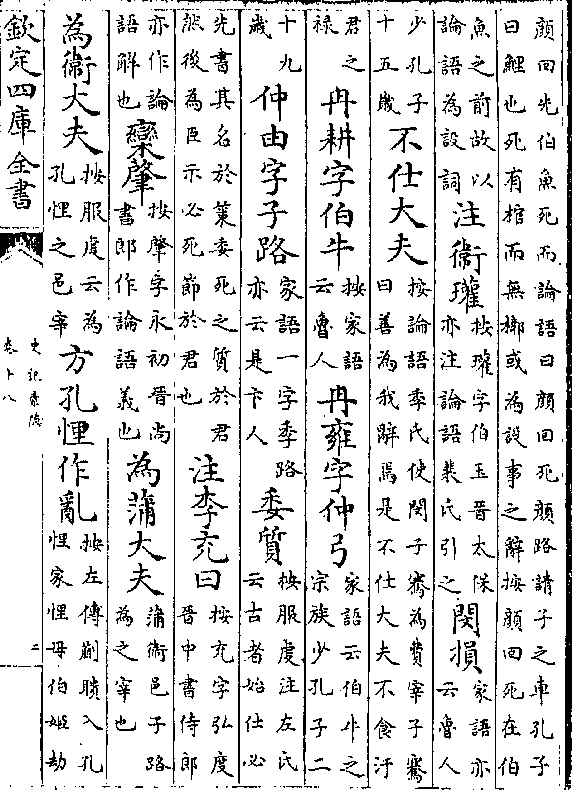 顔回先伯魚死而論語曰顔回死顔路請子之車孔子
曰鯉也死有棺而無槨或為設事之辭按顔回死在伯
魚之前故以
論語為設詞
注衞瓘
按瓘字伯玉晉太保
亦注論語裴氏引之
閔損
家語亦
云魯人
少孔子
十五歲
不仕大夫
按論語季氏使閔子騫為費宰子騫
曰善為我辭焉是不仕大夫不食汙
君之
禄
冉耕字伯牛
按家語
云魯人
冉雍字仲弓
家語云伯牛之
宗族少孔子二
十九
歲
仲由字子路
家語一字季路
亦云是卞人
委質
按服虔注左氏
云古者始仕必
先書其名於策委死之質於君
然後為臣示必死節於君也
注李充曰
按充字弘度
晉中書侍郎
亦作論
語解也
欒肇
按肇字永初晉尚
書郎作論語義也
為蒲大夫
蒲衞邑子路
為之宰也
為衞大夫
按服虔云為
孔悝之邑宰
方孔悝作亂
按左傳蒯聵入孔
悝家悝母伯姬劫
欽定四庫全書
史記索隱
卷十八
二